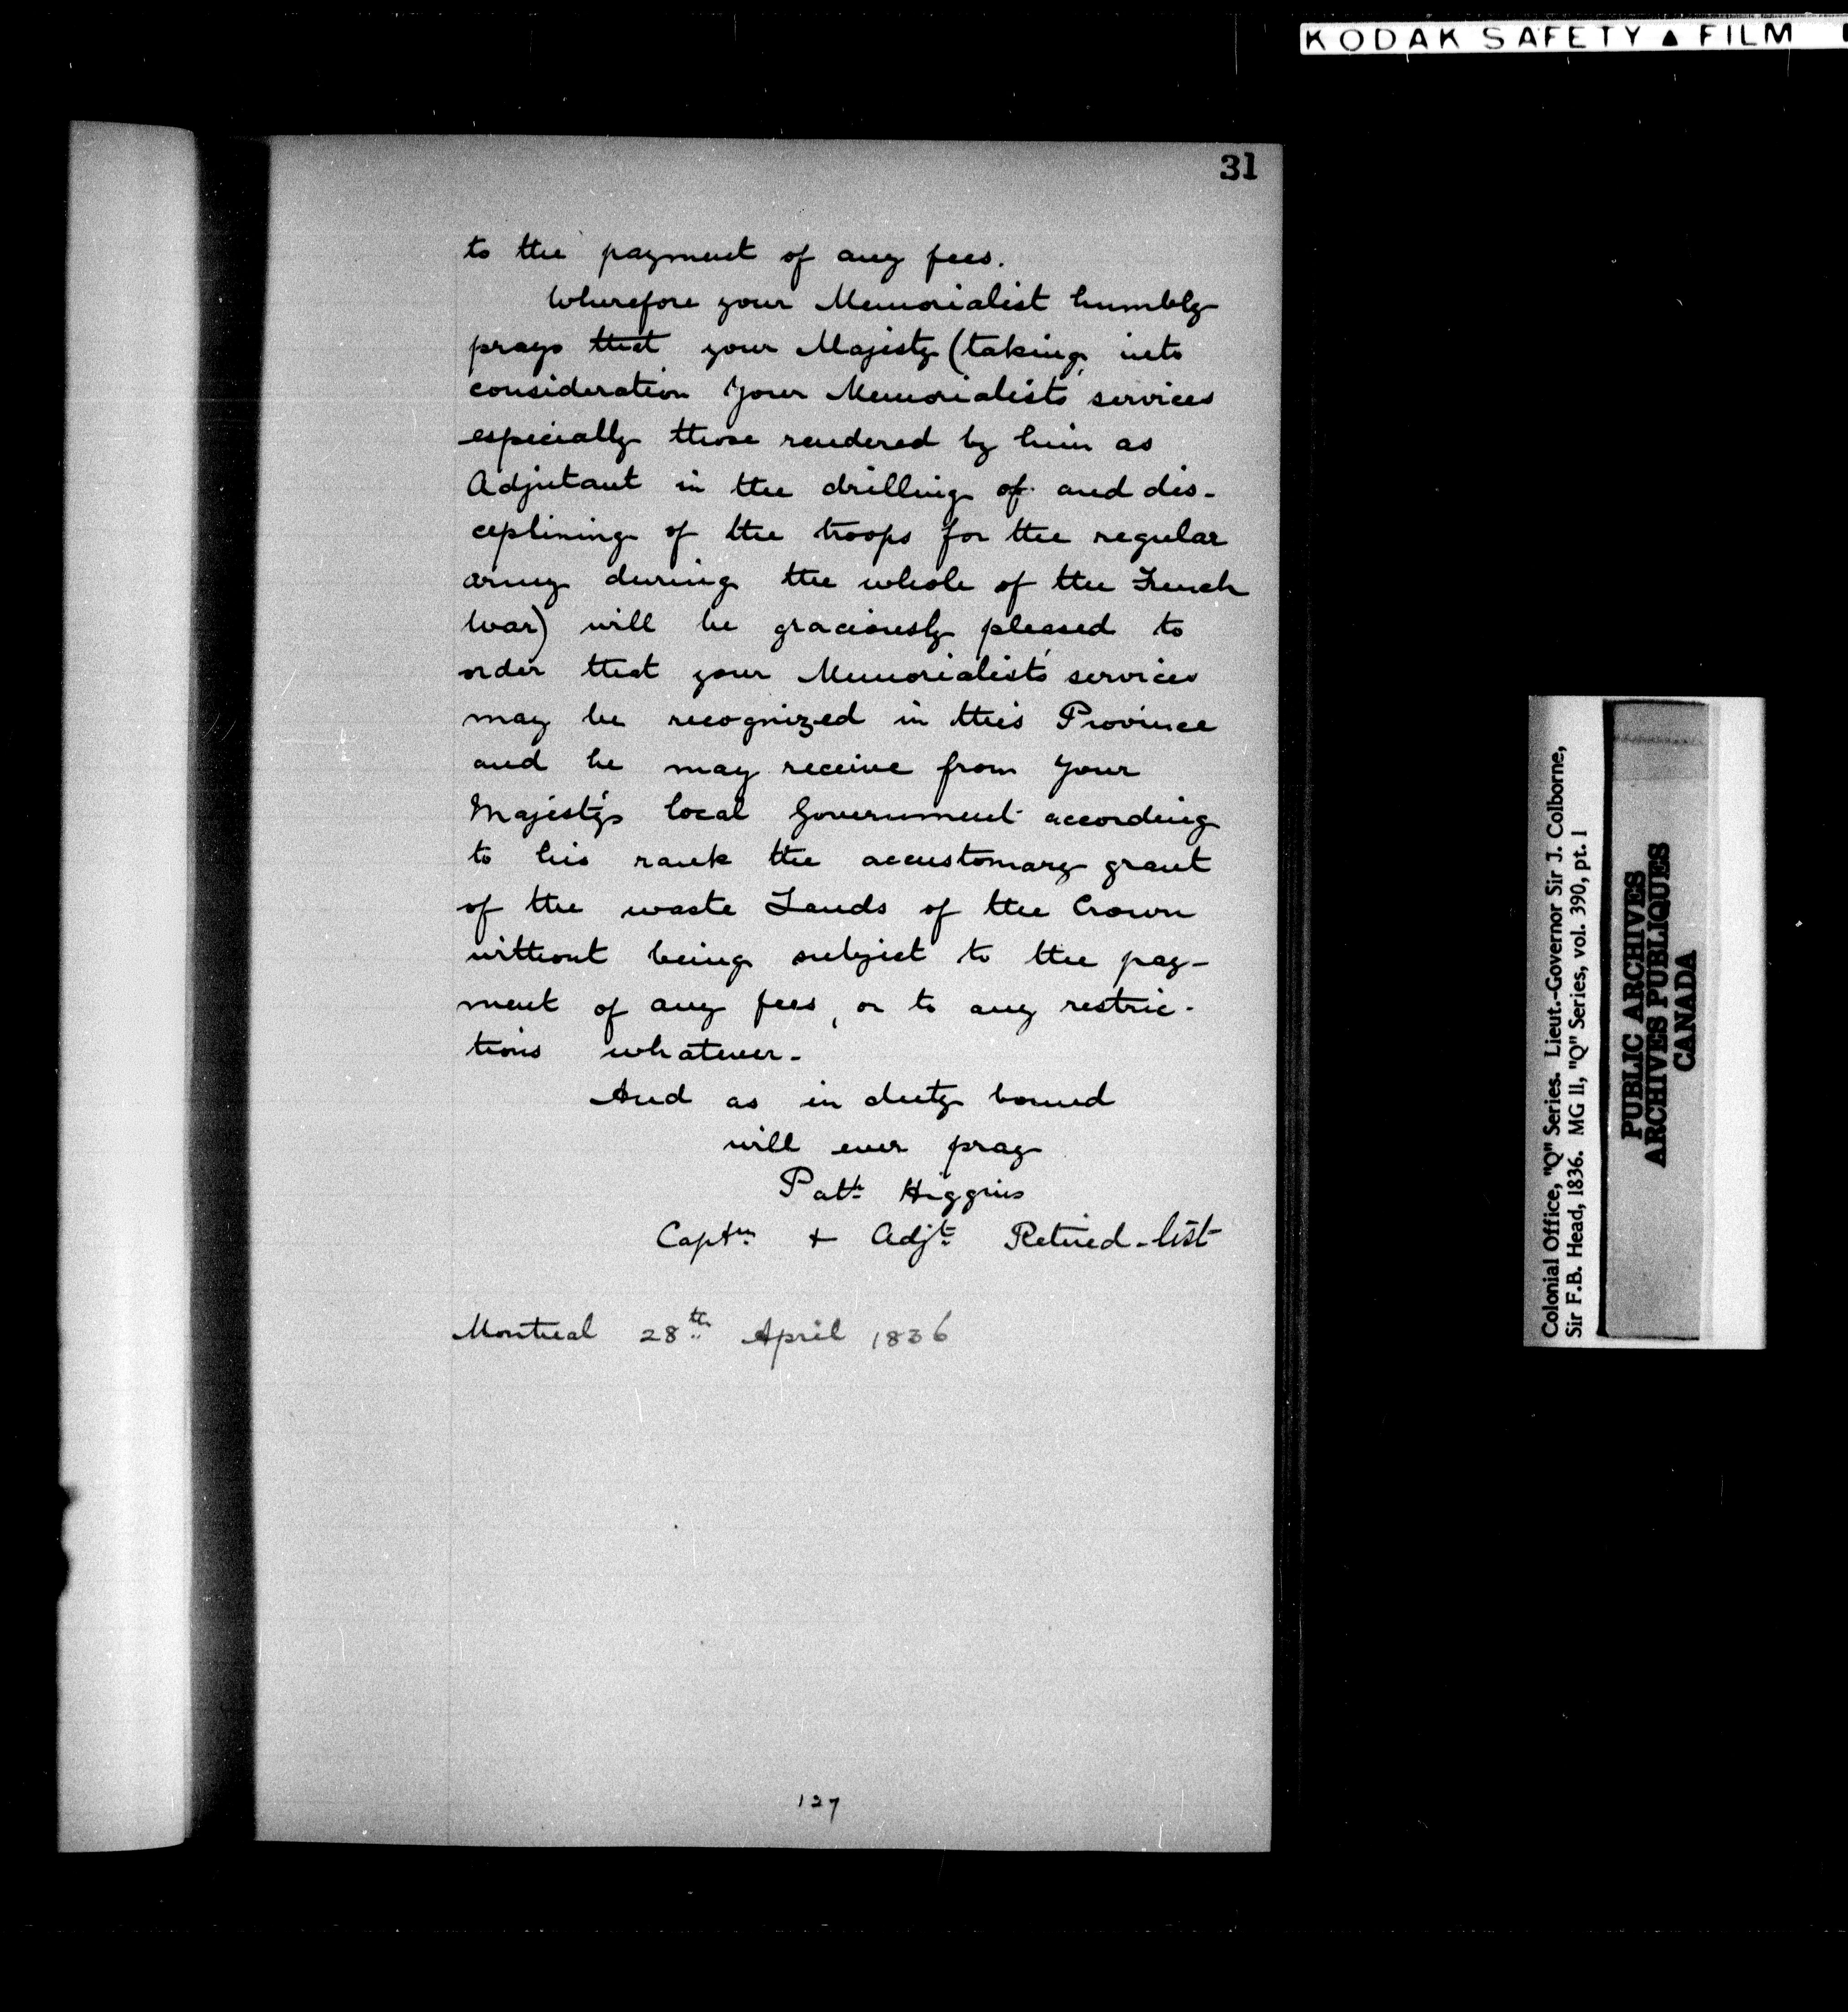 KODAK SAFETY ▲ FILM
31
to the payment of any fees.
Wherefore your Memorialist humbly
prays that your Majesty (taking into
consideration your Memorialist's services
especially those rendered by him as
Adjutant in the drilling of and dis-
ceplining of the troops for the regular
army during the whole of the French
War) will be graciously pleased to
order that your Memorialist's services
may be recognized in this Province
and he may receive from your
Majesty's local Government according
to his rank the accustomary grant
of the waste Lands of the Crown
without being subject to the pay-
ment of any fees, or to any restric-
tions whatever.
And as in duty bound
will ever pray
Patk Higgins
Captn + Adjt Retired-list
Montreal 28th April 1836
127
Colonial Office, "Q" Series. Lieut.-Governor Sir J. Colborne,
Sir F.B. Head, 1836. MG 11, "Q" Series, vol. 390, pt. 1
PUBLIC ARCHIVES
ARCHIVES PUBLIQUES
CANADA